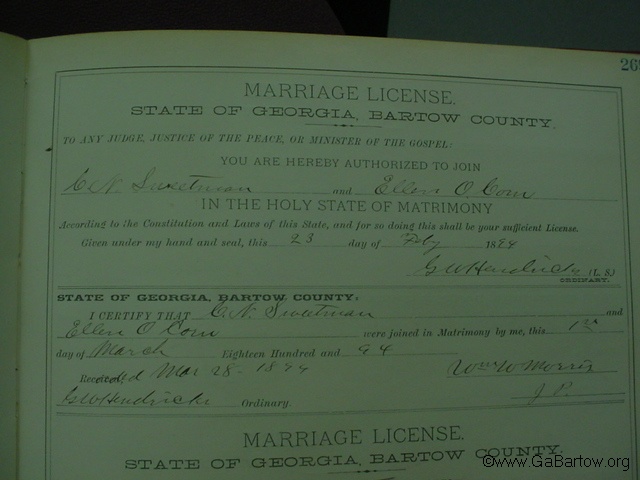 269
MARRIAGE LICENSE.
STATE OF GEORGIA, BARTOW COUNTY.
TO ANY JUDGE, JUSTICE OF THE PEACE, OR MINISTER OF THE GOSPEL:
YOU ARE HEREBY AUTHORIZED TO JOIN
C. N. Sweetman and Ellen O
IN THE HOLY STATE OF MATRIMONY
According to the Constitution and Laws of this State, and for so doing this shall be your sufficient License.
Given under my hand and seal, this 23 day of Feby 1894
G W Hendricks (L. S.)
ORDINARY.
STATE OF GEORGIA, BARTOW COUNTY:
I CERTIFY THAT C. N. Sweetman and
Ellen O were joined in Matrimony by me, this 1st
day of March Eighteen Hundred and 94
Recorded Mar 28 - 1894 Wm W Morris
G W Hendricks Ordinary. J P.
MARRIAGE LICENSE.
STATE OF GEORGIA, BARTOW COUNTY.
©www.GaBartow.org